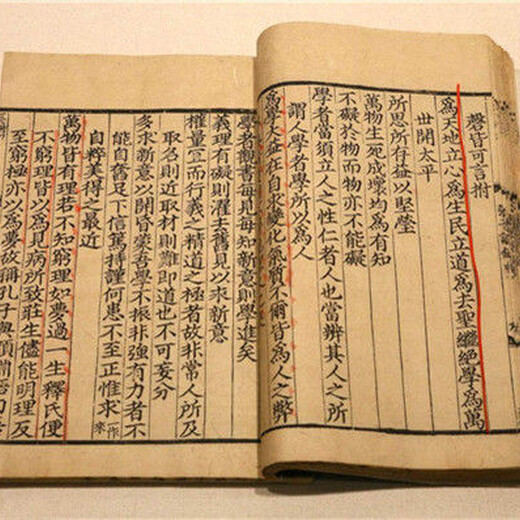 聲皆可言拊
爲天地立心爲生民立道爲去聖繼絕學爲萬
世開太平
所思所存益以堅瑩
萬物生死成壞均爲有知
不礙於物而物亦不能礙
學者當須立人之性仁者人也當辨其人之所
謂人學者學所以爲人
爲學大益在自求變化氣質不爾皆爲人之弊
學者觀書每見每知新意則學進矣
義理有礙則濯去舊見以求新意
權量宜而行義之精道之極者故非常人所及
取名則近取材則難即道也不可妄分
多求新意以開昏蒙吾學不振非強有力者不
能自奮足下信篤持謹何患不至正惟求一作來
自粹美得之最近
萬物皆有理若不知窮理如夢過一生釋氏便
不窮理皆以爲見病所致莊生儘能明理反
至窮極亦以爲夢故稱孔子與顔淵語曰